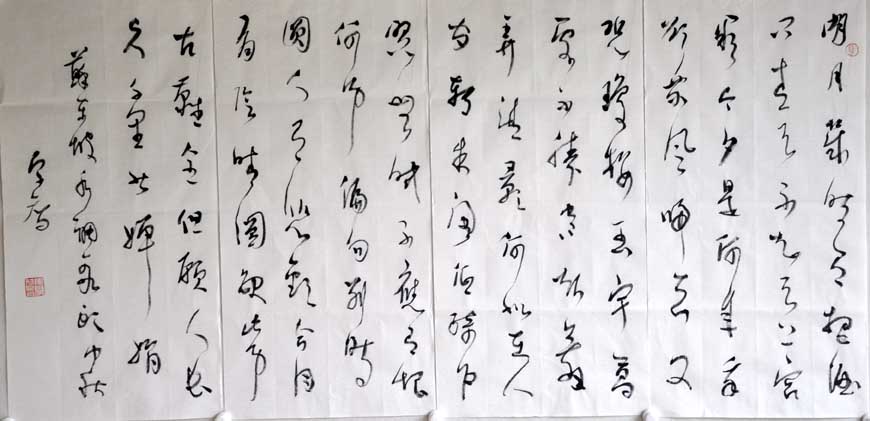 明月几时有把酒
问青天不知天上宫
阙今夕是何年我
欲乘风归去又
恐琼楼玉宇高
处不胜寒起舞
弄清影何似在人
间转朱阁低绮户
照无眠不应有恨
何事偏向别时
圆人有悲欢合月
有阴晴圆缺此事
古难全但愿人长
久千里共婵娟
苏东坡水调歌头中秋